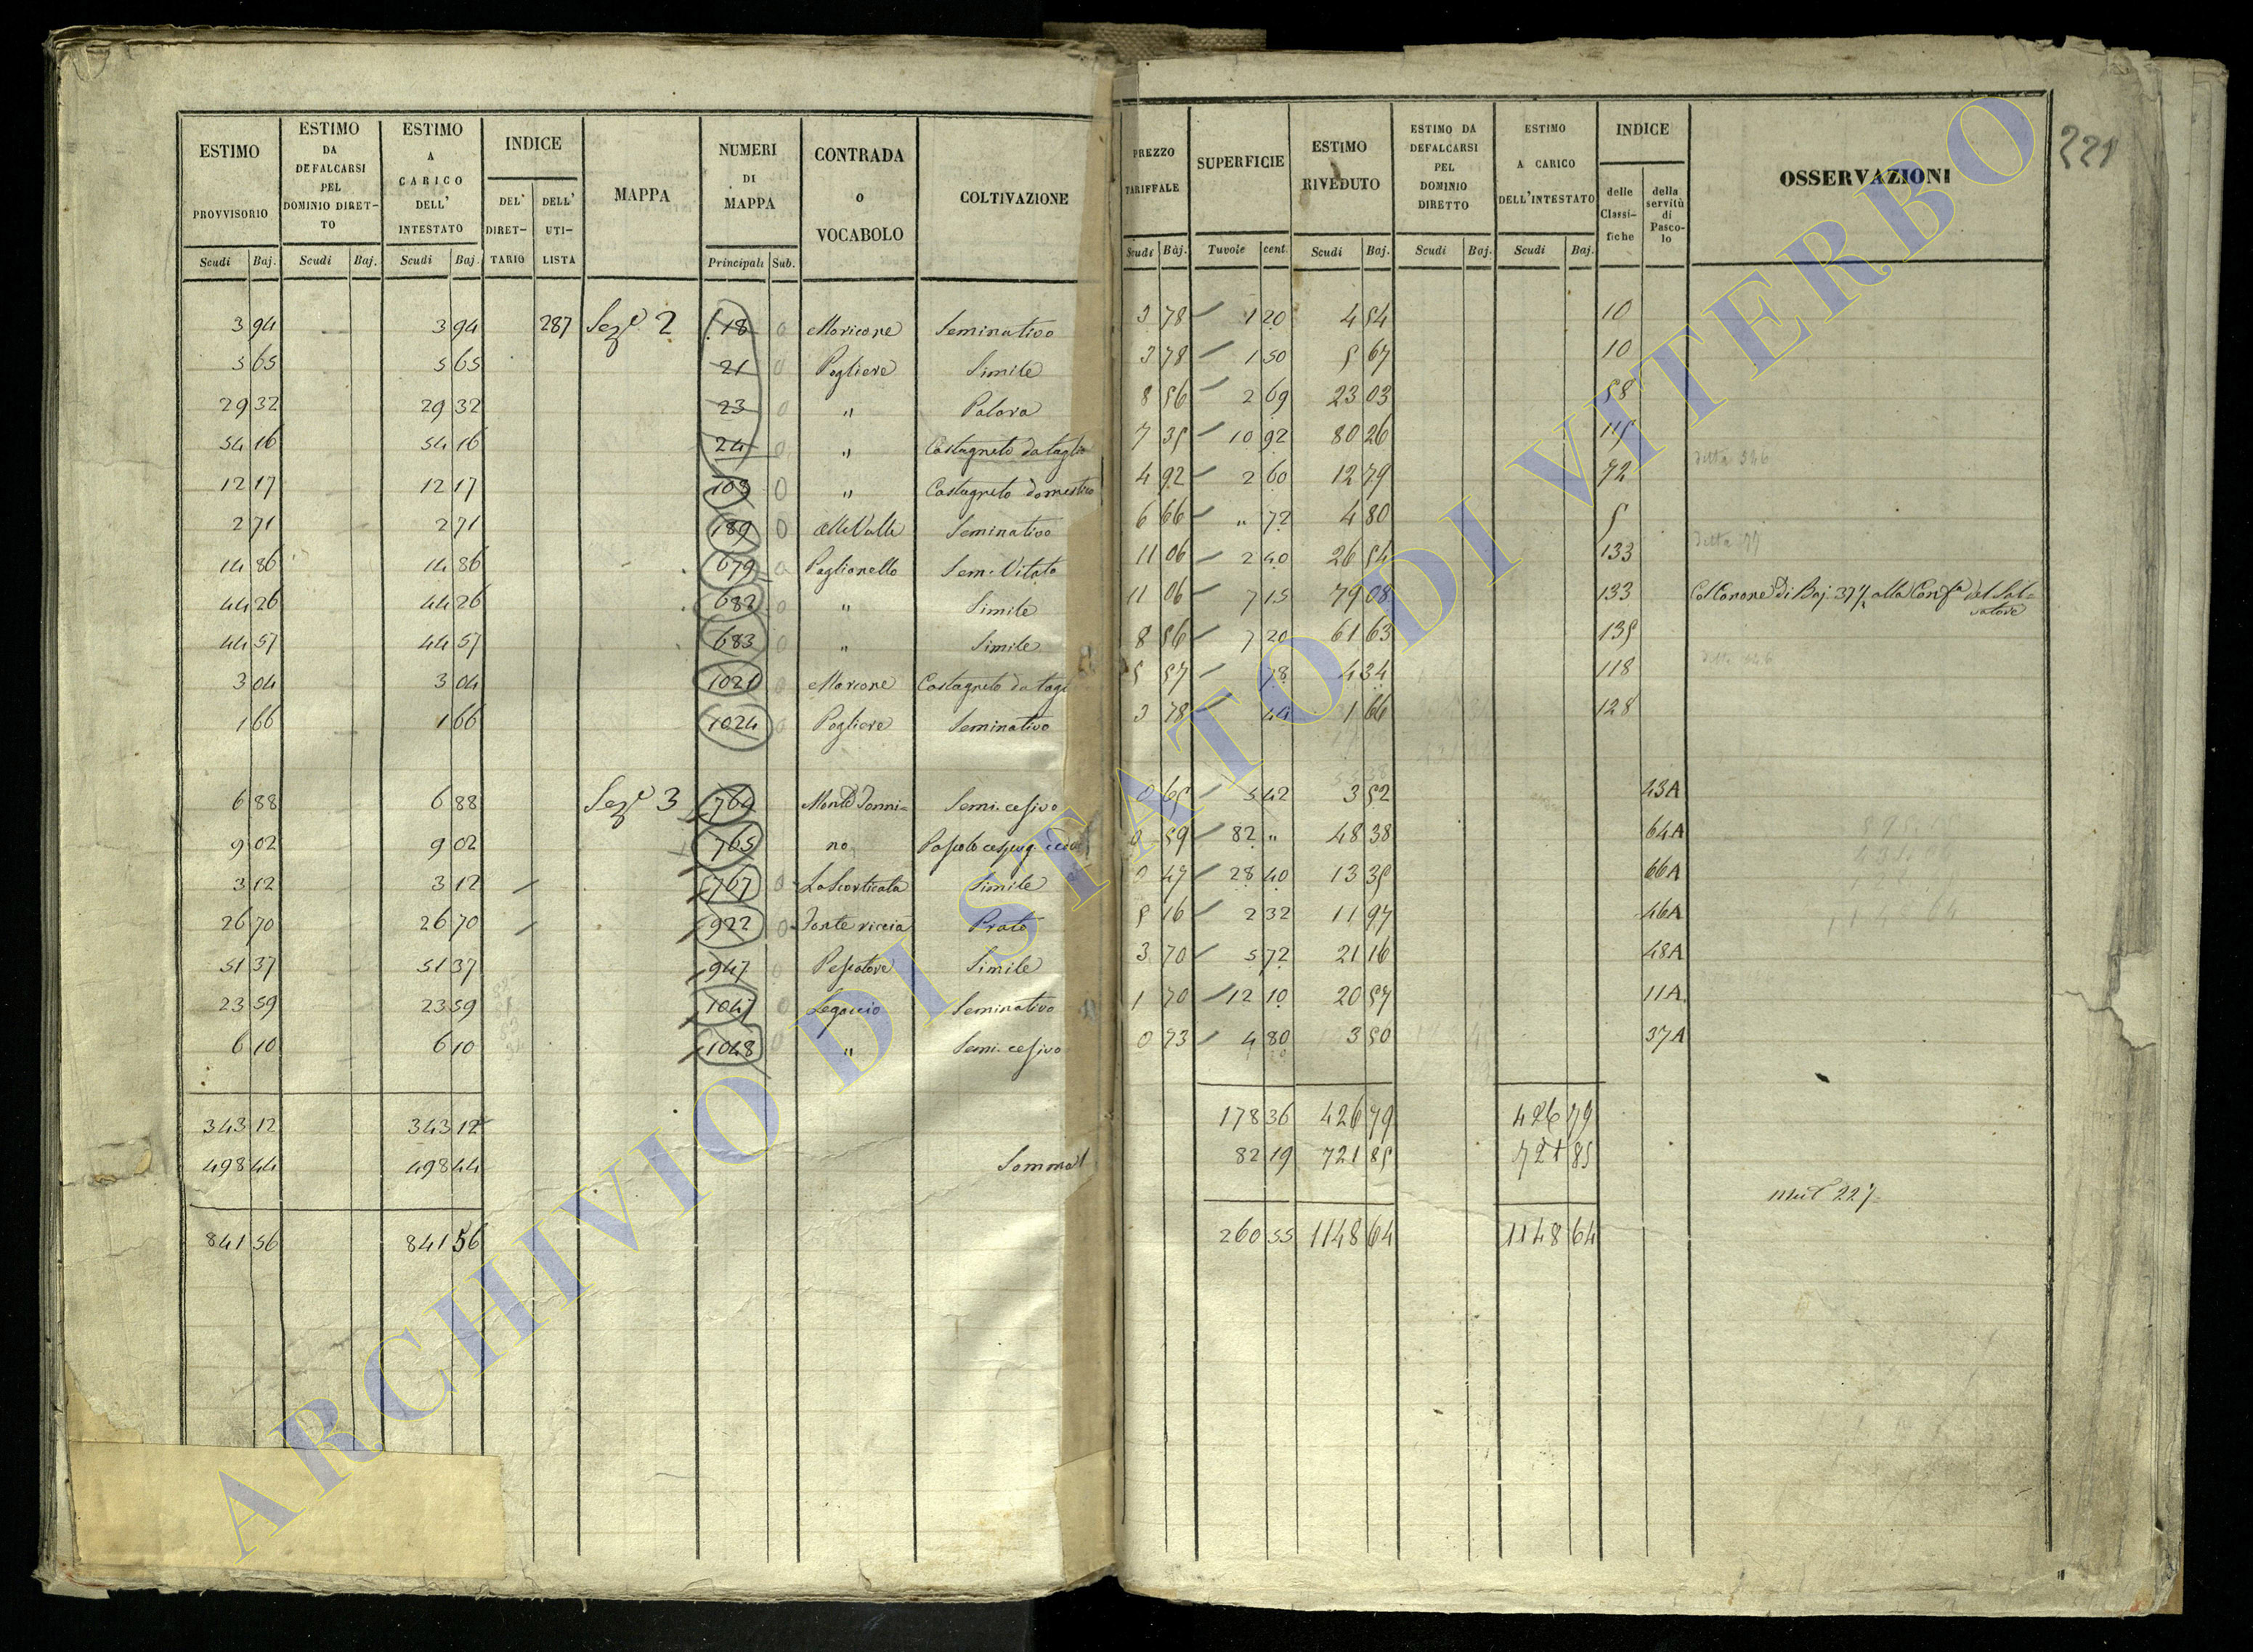 221
ESTIMO PROVVISORIO
ESTIMO DA DEFALCARSI PEL DOMINIO DIRET-TO
ESTIMO A CARICO DELL' INTESTATO
INDICE
DEL' DIRET-TARIO
DELL' UTI-LISTA
MAPPA
NUMERI DI MAPPA
CONTRADA o VOCABOLO
COLTIVAZIONE
PREZZO TARIFFALE
SUPERFICIE
ESTIMO RIVEDUTO
ESTIMO DA DEFALCARSI PEL DOMINIO DIRETTO
ESTIMO A CARICO DELL'INTESTATO
INDICE
delle Classi-fiche
della servitù di Pasco-lo
OSSERVAZIONI
Scudi Baj. Scudi Baj. Scudi Baj. Principali Sub. Scudi Baj. Tavole cent. Scudi Baj. Scudi Baj. Scudi Baj.
3 94 3 94 287 Sezᵉ 2 18 0 Moricone Seminativo 3 78 1 20 4 54 10
5 65 5 65 21 0 Pogliere Simile 3 78 1 50 5 67 10
29 32 29 32 23 0 " 8 56 2 69 23 03 58
54 16 54 16 24 0 " Castagneto da taglio 7 35 10 92 80 26 115
12 17 12 17 108 0 " Castagneto domestico 4 92 2 60 12 79 72 ditta 326
2 71 2 71 189 0 Alle Valle Seminativo 6 66 " 72 4 80 5
14 86 14 86 679 0 Poglionello Sem. Vitato 11 06 2 40 26 54 133 ditta 77
44 26 44 26 682 0 " Simile 11 06 7 15 79 08 133 Col Canone di Baj. 37½ alla Confª del Sal-
vatore
44 57 44 57 683 0 " Simile 8 56 7 20 61 63 135
3 04 3 04 1021 0 Morione Castagneto da tagl 5 57 78 4 34 118
1 66 1 66 1024 0 Pogliere Seminativo 3 78 44 1 66 128
6 88 6 88 Sezᵉ 3 764 Monte Jonni= Semi. cesivo 0 65 5 42 3 52 43A
9 02 9 02 765 no Pascolo cespug. 0 59 82 " 48 38 64A
3 12 3 12 767 0 La Scorticata Simile 0 47 28 40 13 35 66A
26 70 26 70 922 0 Fonte riccia Prato 5 16 2 32 11 97 46A
51 37 51 37 947 0 Pescatore Simile 3 70 5 72 21 16 48A
23 59 23 59 1047 0 Legaccio Seminativo 1 70 12 10 20 57 11A
6 10 6 10 1048 0 " Semi. cesivo 0 73 4 80 3 50 37A
343 12 343 12 178 36 426 79 426 79
498 44 498 44 Somma 82 19 721 85 721 85
227
841 56 841 56 260 55 1148 64 1148 64
ARCHIVIO DI STATO DI VITERBO